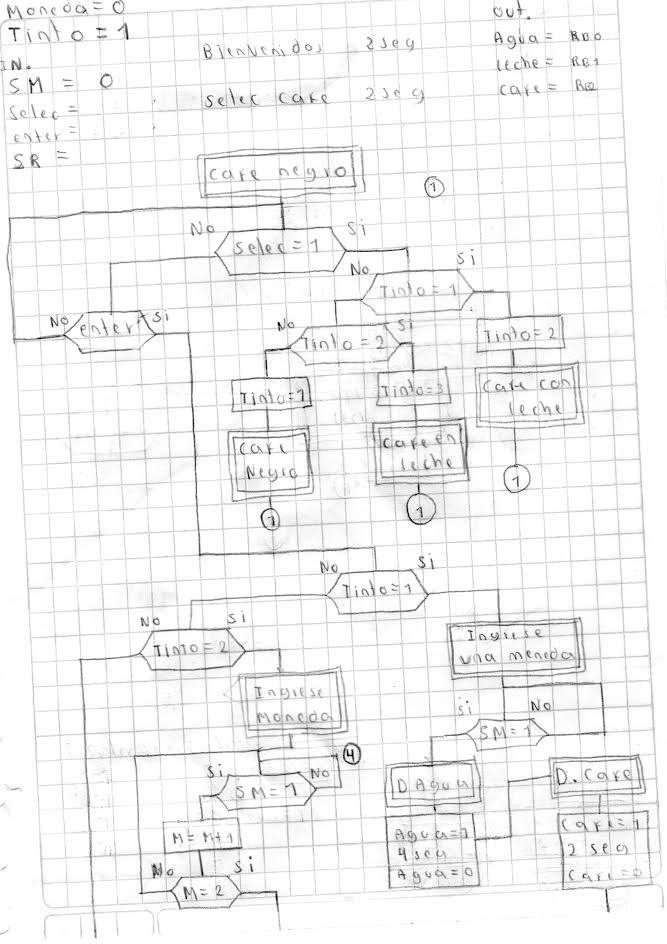 Moneda=0
Tinto=1
IN.
SM = 0
Selec=
enter=
SR =
Bienvenidos 2seg
Selec cafe 2seg
out.
Agua= RB0
leche= RB1
cafe= RB2
cafe negro
1
No
Si
Selec=1
No
Si
Tinto=1
No
enter
Si
No
Si
Tinto=2
Tinto=2
Tinto=1
Tinto=3
cafe con
leche
cafe
Negro
cafe en
leche
1
1
1
No
Si
Tinto=1
No
Si
Tinto=2
Ingrese
una moneda
Ingrese
Moneda
Si
No
SM=1
4
Si
No
SM=1
D.Agua
D.Cafe
M=M+1
Agua=1
4seg
Agua=0
Cafe=1
2 seg
Cafe=0
No
Si
M=2